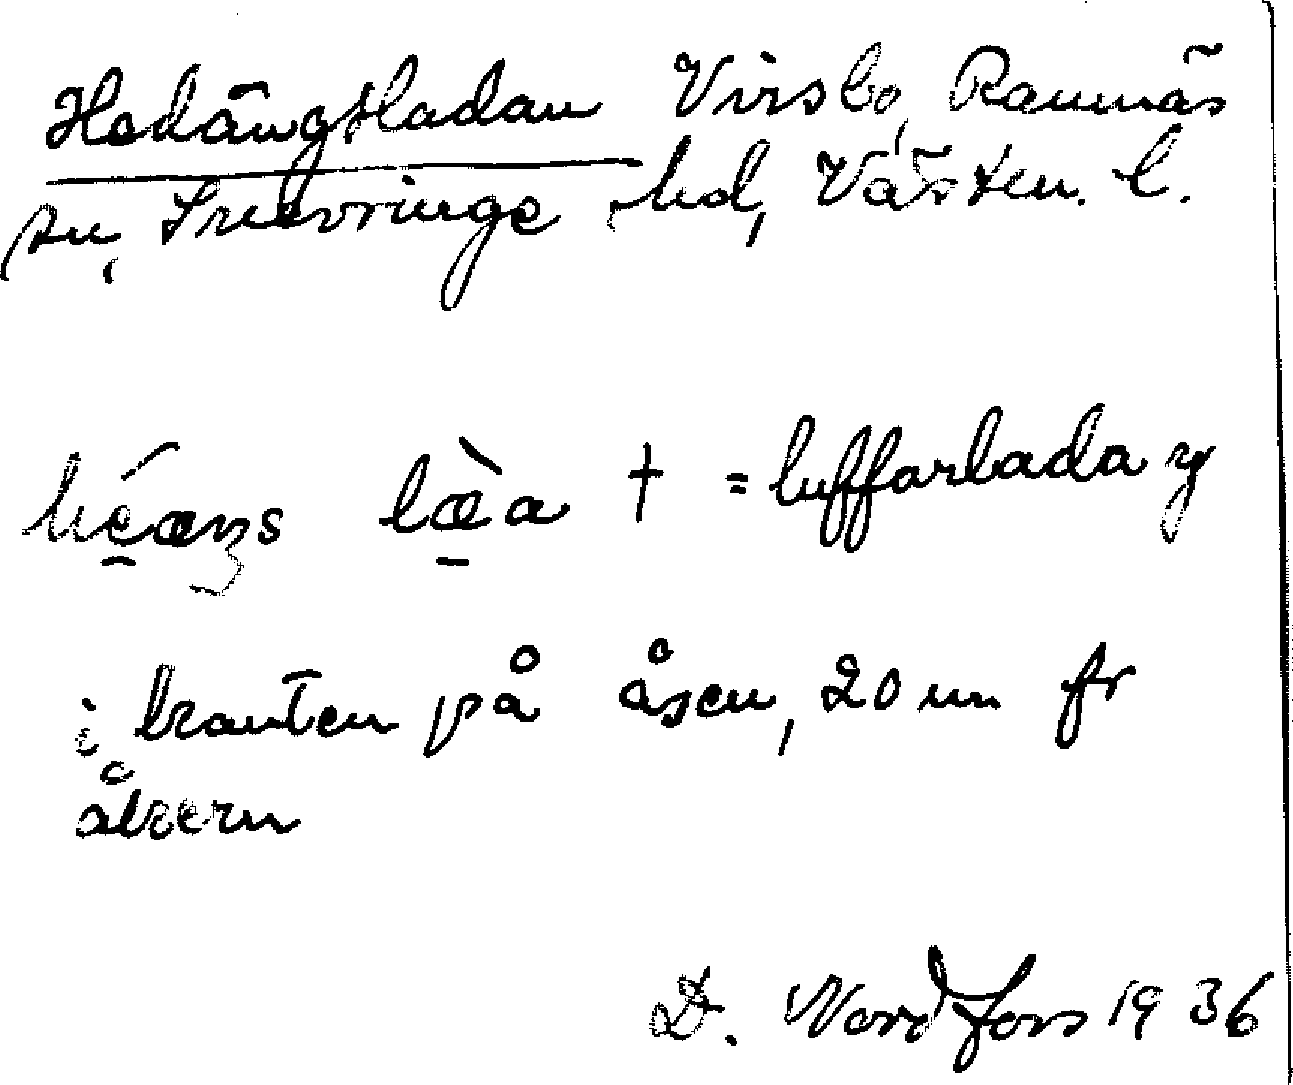 Hedängsladan Virsbo, Ramnäs
sn, Snevringe hd, Västm. l.
héæŋs læ̀a † = luffarlada y
i branten på åsen, 20 m fr
älven
D. Nordfors 1936